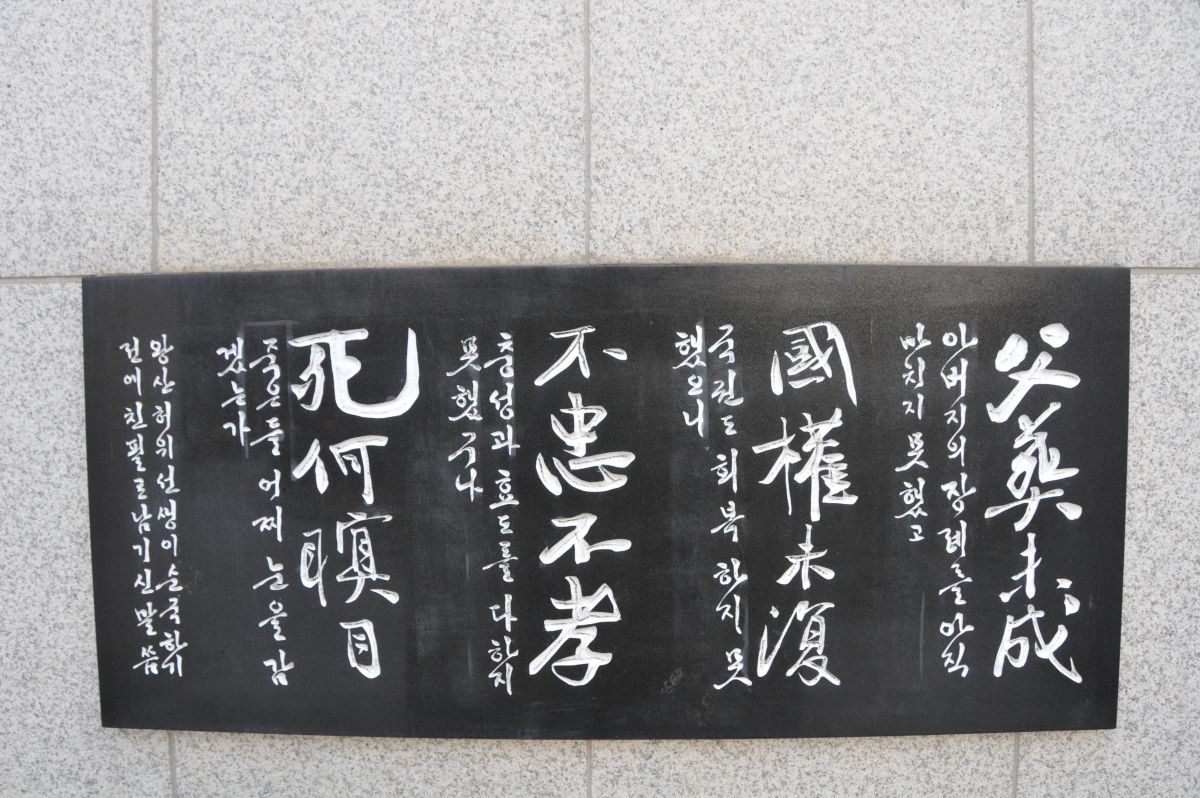 父葬未成
아버지의 장례를 아직
마치지 못했고
國權未復
국권도 회복하지 못
했으니
不忠不孝
충성과 효도를 다하지
못했구나
死何瞑目
죽은들 어찌 눈을 감
겠는가
왕산 허위 선생이 순국하기
전에 친필로 남기신 말씀